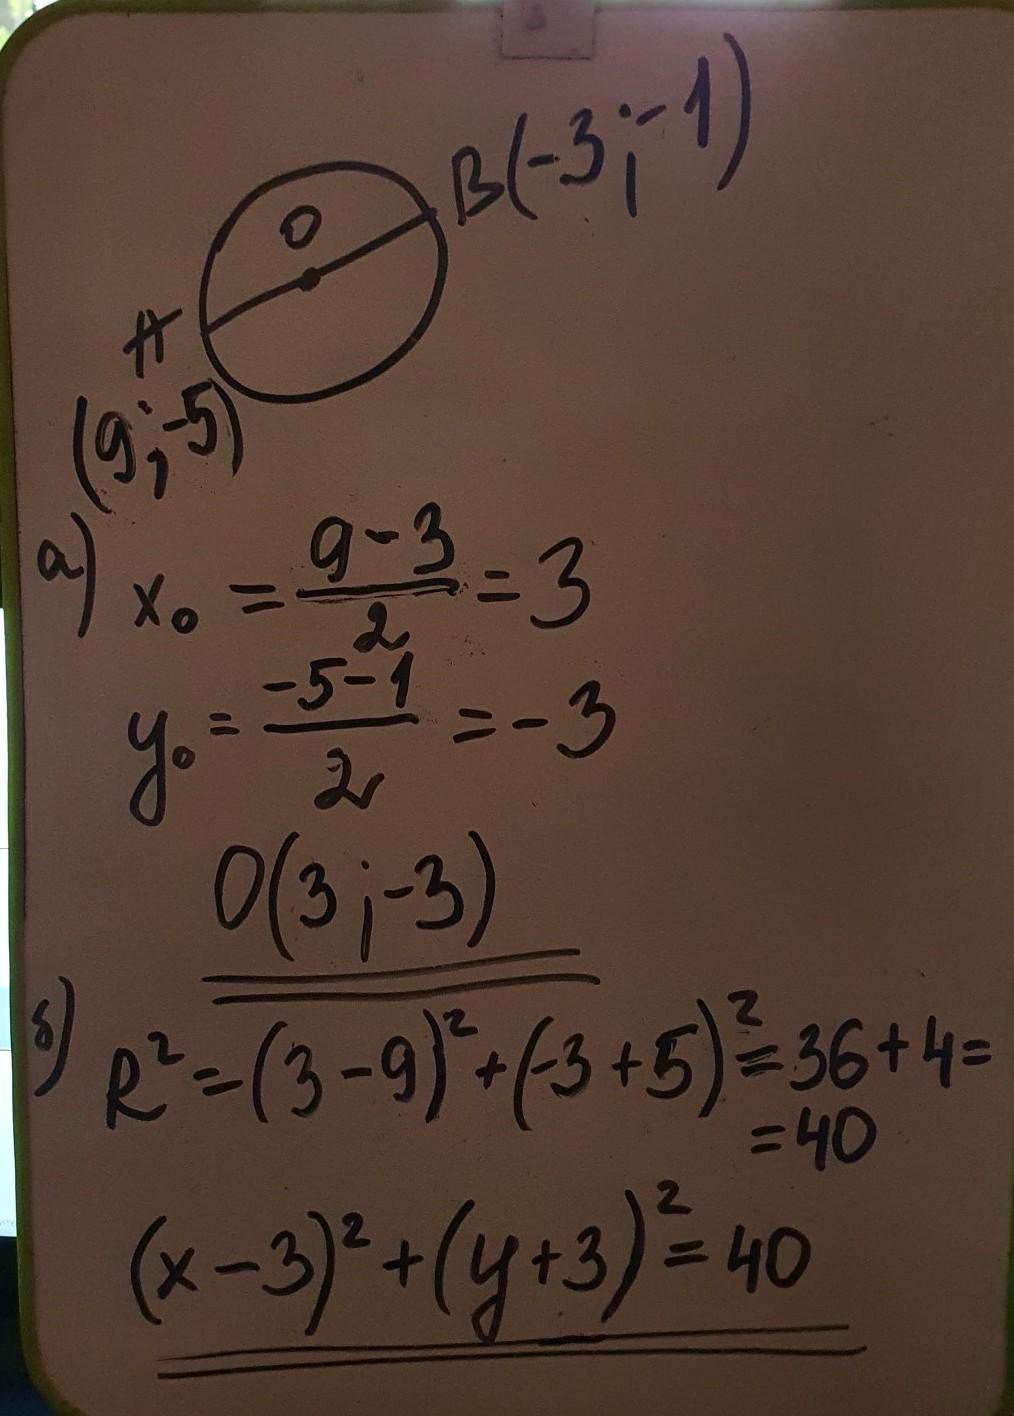 B(-3;-1)
O
A
(9;-5)
а) x₀ = (9-3)/2 = 3
y₀ = (-5-1)/2 = -3
O(3;-3)
б) R² = (3-9)² + (-3+5)² = 36+4=
=40
(x-3)² + (y+3)² = 40